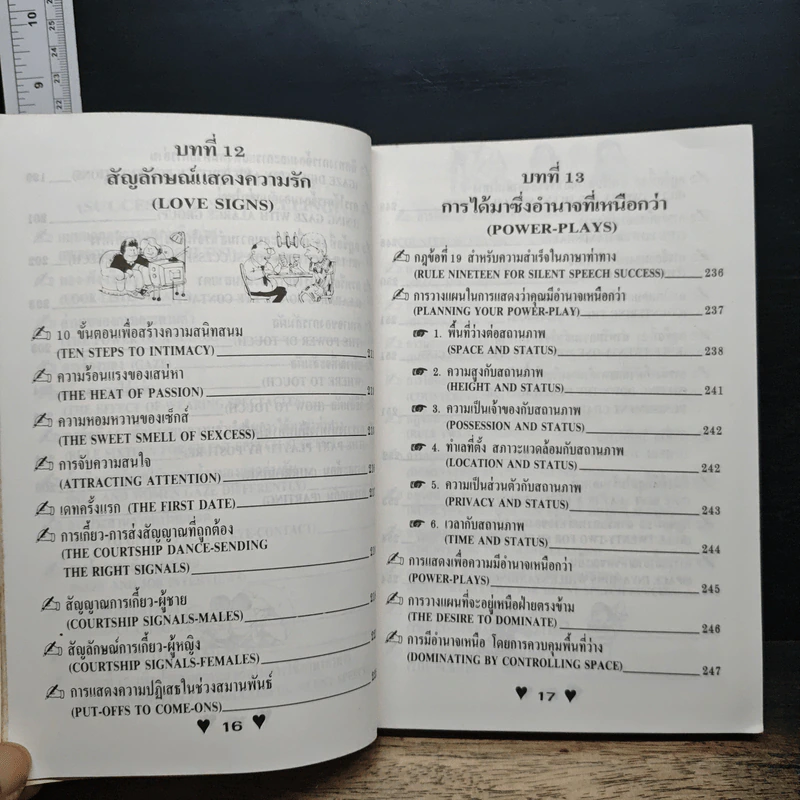 บทที่ 12
สัญลักษณ์แสดงความรัก
(LOVE SIGNS)
10 ขั้นตอนเพื่อสร้างความสนิทสนม
(TEN STEPS TO INTIMACY)
ความร้อนแรงของเสน่หา
(THE HEAT OF PASSION)
ความหอมหวานของเซ็กส์
(THE SWEET SMELL OF SEXCESS)
การจับความสนใจ
(ATTRACTING ATTENTION)
เดทครั้งแรก (THE FIRST DATE)
การเกี้ยว-การส่งสัญญาณที่ถูกต้อง
(THE COURTSHIP DANCE-SENDING
THE RIGHT SIGNALS)
สัญญาณการเกี้ยว-ผู้ชาย
(COURTSHIP SIGNALS-MALES)
สัญลักษณ์การเกี้ยว-ผู้หญิง
(COURTSHIP SIGNALS-FEMALES)
การแสดงความปฏิเสธในช่วงสมานพันธ์
(PUT-OFFS TO COME-ONS)
♥ 16 ♥
บทที่ 13
การได้มาซึ่งอำนาจที่เหนือกว่า
(POWER-PLAYS)
กฎข้อที่ 19 สำหรับความสำเร็จในภาษาท่าทาง
(RULE NINETEEN FOR SILENT SPEECH SUCCESS) 236
การวางแผนในการแสดงว่าคุณมีอำนาจเหนือกว่า
(PLANNING YOUR POWER-PLAY) 237
1. พื้นที่ว่างต่อสถานภาพ
(SPACE AND STATUS) 238
2. ความสูงกับสถานภาพ
(HEIGHT AND STATUS) 241
3. ความเป็นเจ้าของกับสถานภาพ
(POSSESSION AND STATUS) 242
4. ทำเลที่ตั้ง สภาวะแวดล้อมกับสถานภาพ
(LOCATION AND STATUS) 242
5. ความเป็นส่วนตัวกับสถานภาพ
(PRIVACY AND STATUS) 243
6. เวลากับสถานภาพ
(TIME AND STATUS) 244
การแสดงเพื่อความมีอำนาจเหนือกว่า
(POWER-PLAYS) 245
การวางแผนที่จะอยู่เหนือฝ่ายตรงข้าม
(THE DESIRE TO DOMINATE) 246
การมีอำนาจเหนือ โดยการควบคุมพื้นที่ว่าง
(DOMINATING BY CONTROLLING SPACE) 247
♥ 17 ♥